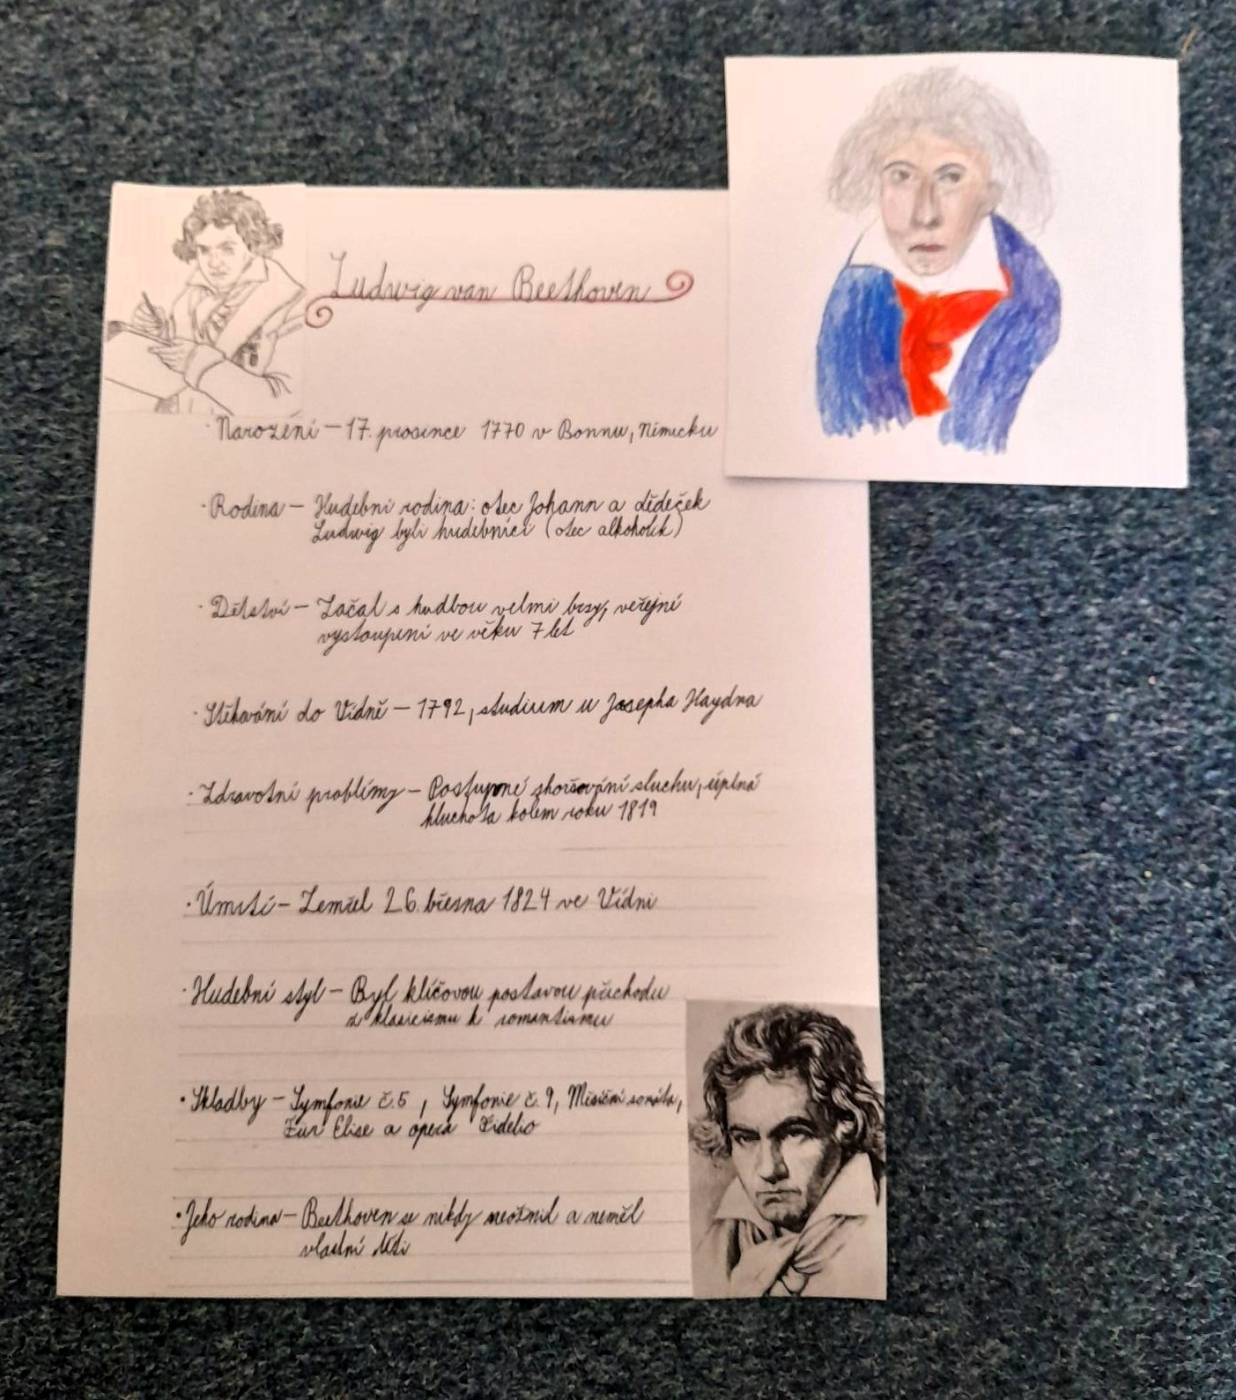 Ludwig van Beethoven
· Narození – 17. prosince 1770 v Bonnu, Německu
· Rodina – Hudební rodina: otec Johann a dědeček
Ludwig byli hudebníci (otec alkoholik)
· Dětství – Začal s hudbou velmi brzy, veřejné
vystoupení ve věku 7 let
· Stěhování do Vídně – 1792, studium u Josepha Haydna
· Zdravotní problémy – Postupné zhoršování sluchu, úplná
hluchota kolem roku 1819
· Úmrtí – Zemřel 26. března 1824 ve Vídni
· Hudební styl – Byl klíčovou postavou přechodu
z klasicismu k romantismu
· Skladby – Symfonie č. 5, Symfonie č. 9, Měsíční sonáta,
Für Elise a opera Fidelio
· Jeho rodina – Beethoven se nikdy neoženil a neměl
vlastní děti